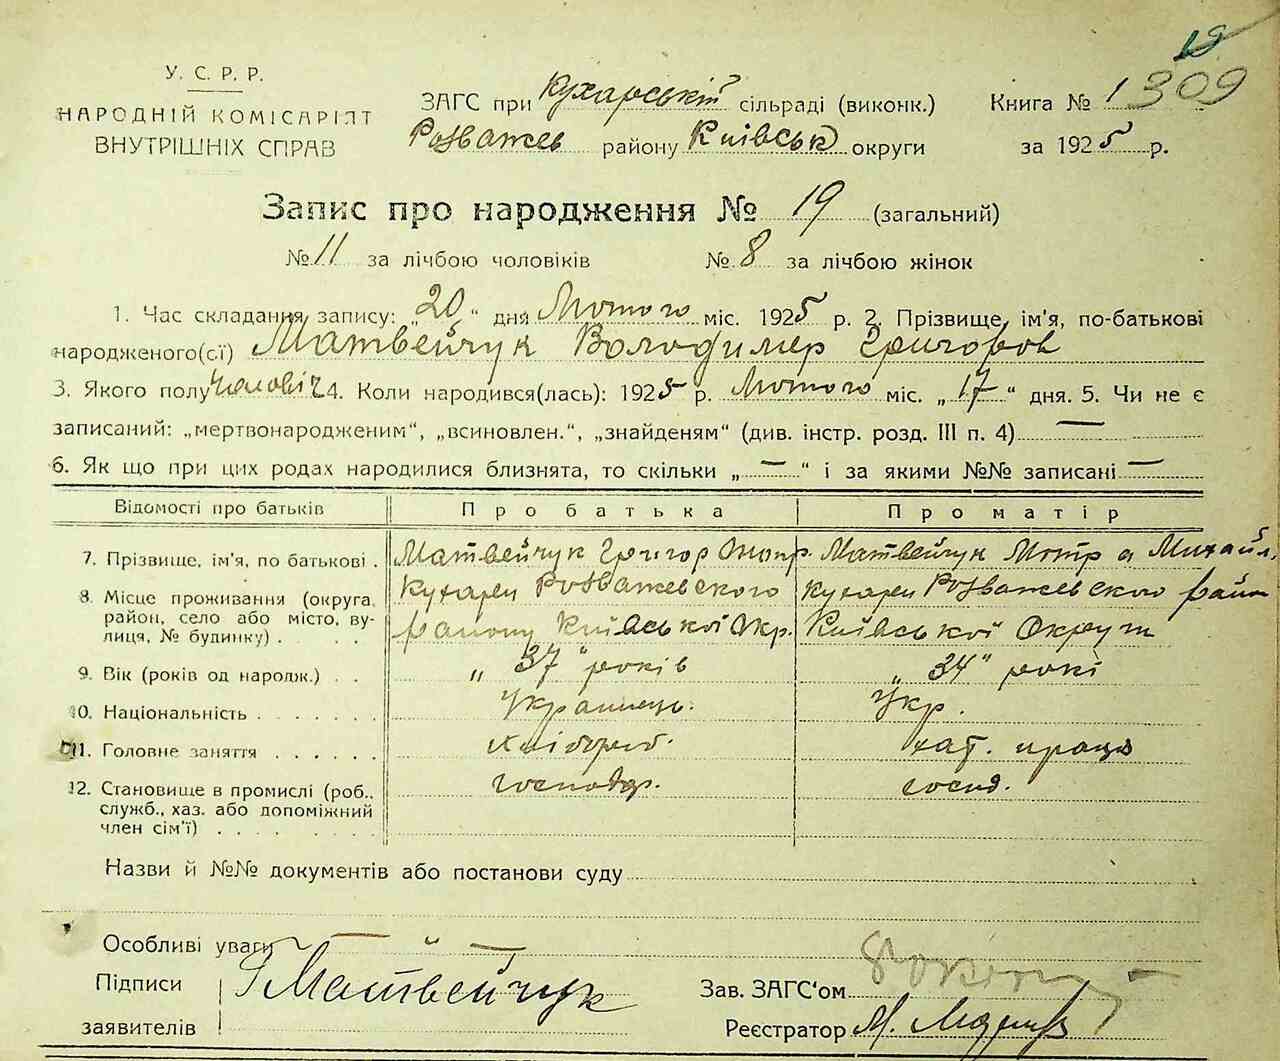 19
309
У. С. Р. Р.
НАРОДНІЙ КОМІСАРІЯТ
ВНУТРІШНІХ СПРАВ
ЗАГС при Кухарській сільраді (виконк.) Книга № 1
Розважев району Київськ округи за 1925 р.
Запис про народження № 19 (загальний)
№ 11 за лічбою чоловіків № 8 за лічбою жінок
1. Час складання запису: „20“ дня Лютого міс. 1925 р. 2. Прізвище, ім'я, по-батькові
народженого(сї) Матвейчук Володимер Григоров
3. Якого полу Чоловіч 4. Коли народився(лась): 1925 р. Лютого міс. „17“ дня. 5. Чи не є
записаний: „мертвонародженим“, „всиновлен.“, „знайденям“ (див. інстр. розд. III п. 4) —
6. Як що при цих родах народилися близнята, то скільки „—“ і за якими №№ записані —
Відомості про батьків Про батька Про матір
7. Прізвище, ім'я, по батькові . Матвейчук Григор Матвейчук Мотра Михайл.
8. Місце проживання (округа, район, село або місто, вулиця, № будинку) . . Кухареи Розважевского Кухареи Розважевского район
району Київської Окр. Київської Округи
9. Вік (років од народж.) . . „37“ років „34“ рокі
10. Національність . . . . . . . Українець. Укр.
11. Головне заняття . . . . . . хлібороб. хат. праця
12. Становище в промислі (роб., служб., хаз. або допоміжний член сім'ї) . . . . господар. госпд.
Назви й №№ документів або постанови суду
Особливі уваги —
Підписи
заявителів
Г Матвейчук
Зав. ЗАГС'ом
Реєстратор М.